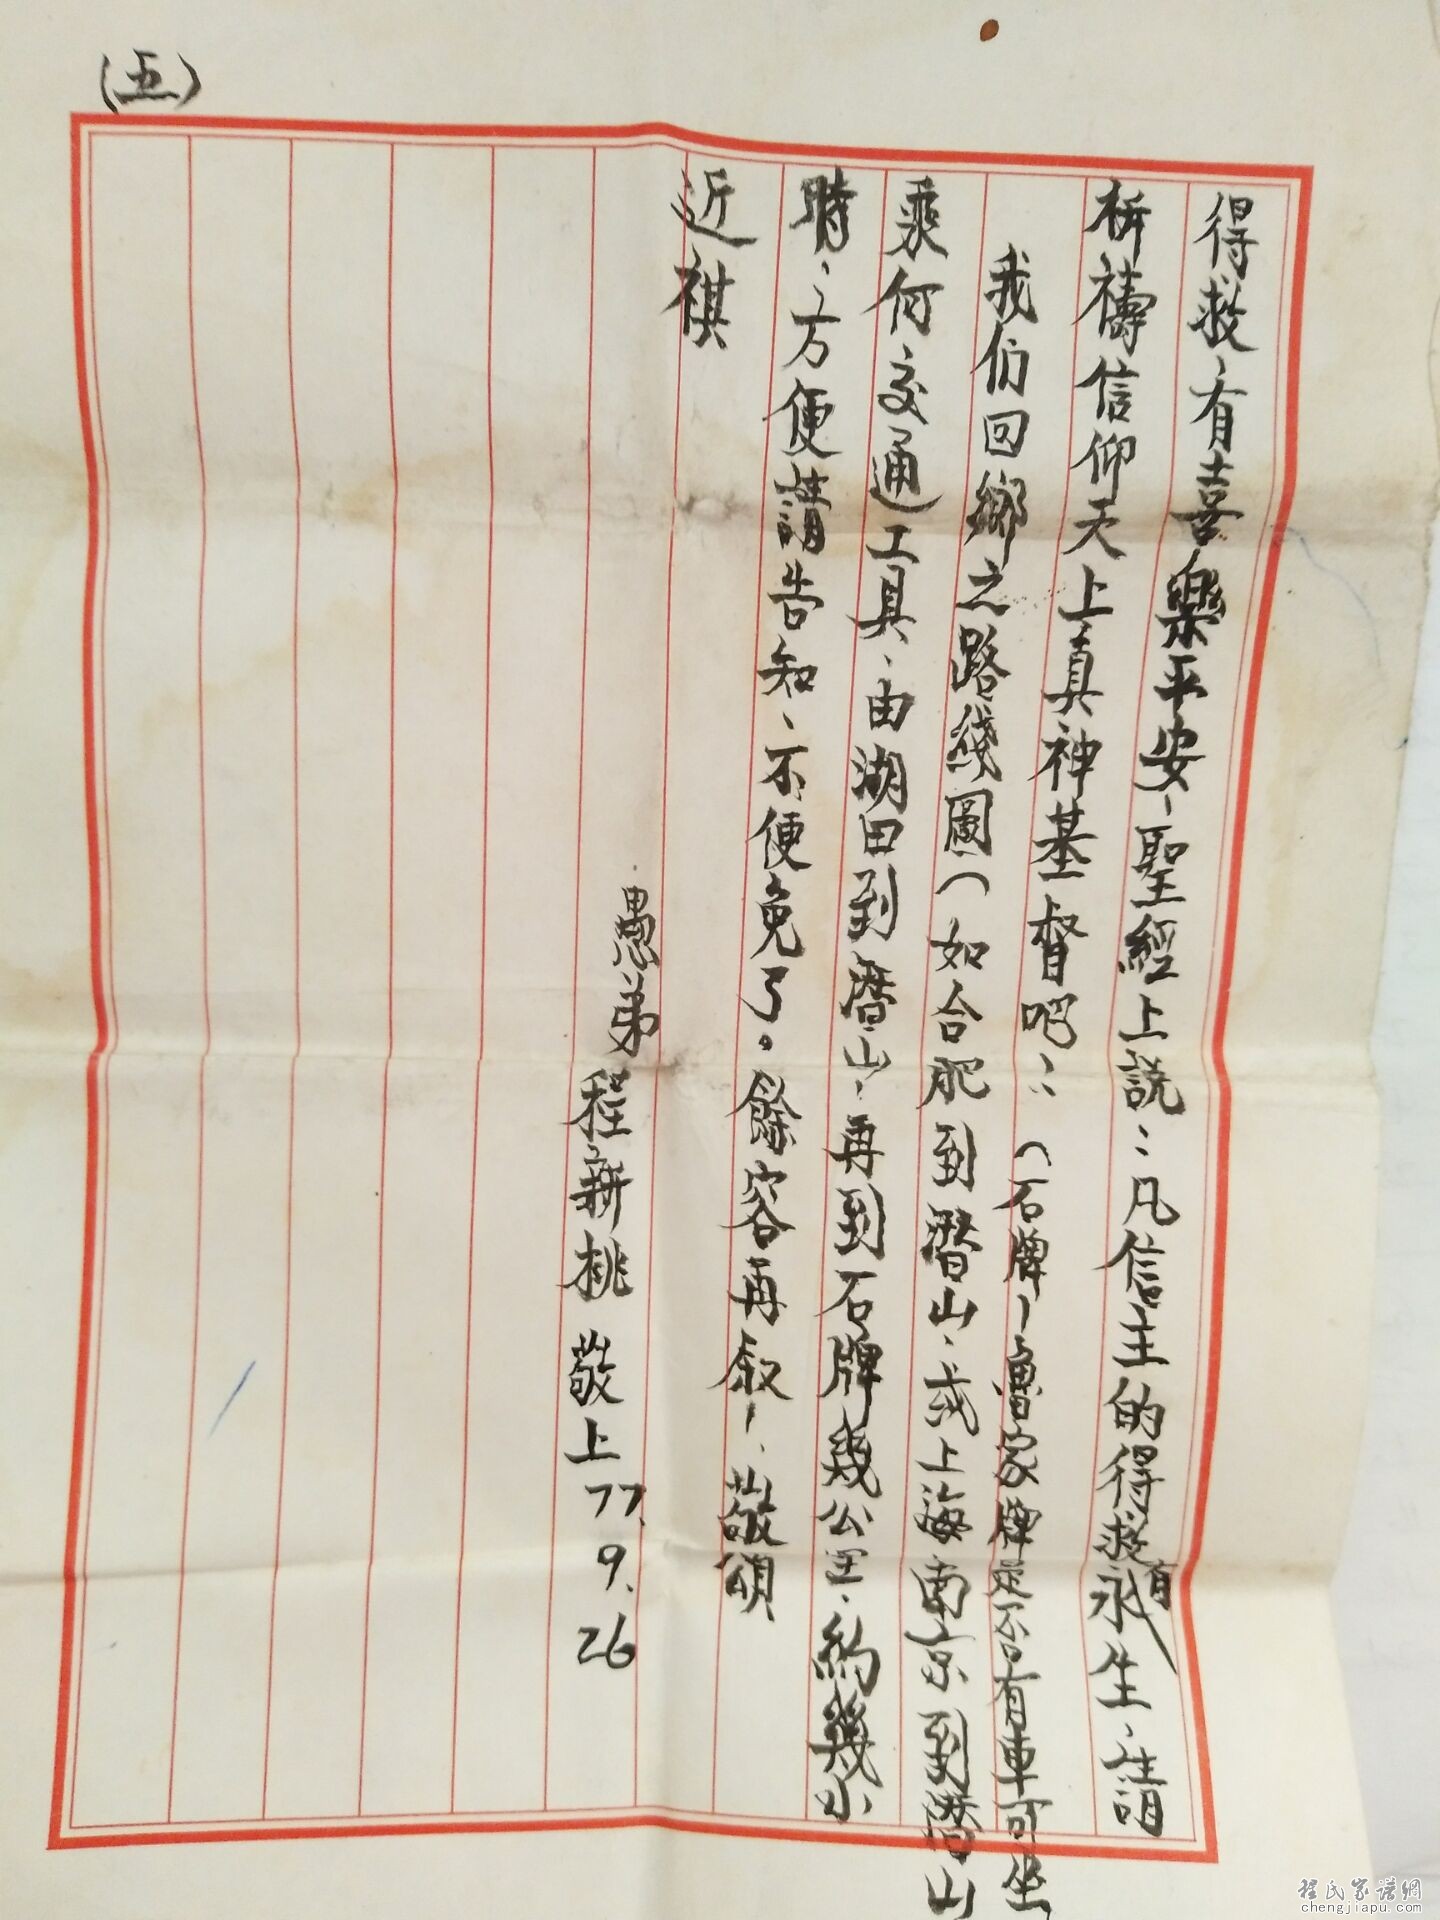 (五)
得救、有喜樂平安、聖經上說：凡信主的得救有永生、請
祈禱信仰天上真神基督吧：（石牌—魯家牌是否有車可坐
我们回鄉之路线圖（如合肥到潛山、或上海南京到潛山
乘何交通工具、由湖田到潛山、再到石牌幾公里、約幾小
時、方便請告知、不便免了。餘容再叙、敬頌
近祺
愚弟
程新桃 敬上 77.9.26
程氏家譜網
chengjiapu.com